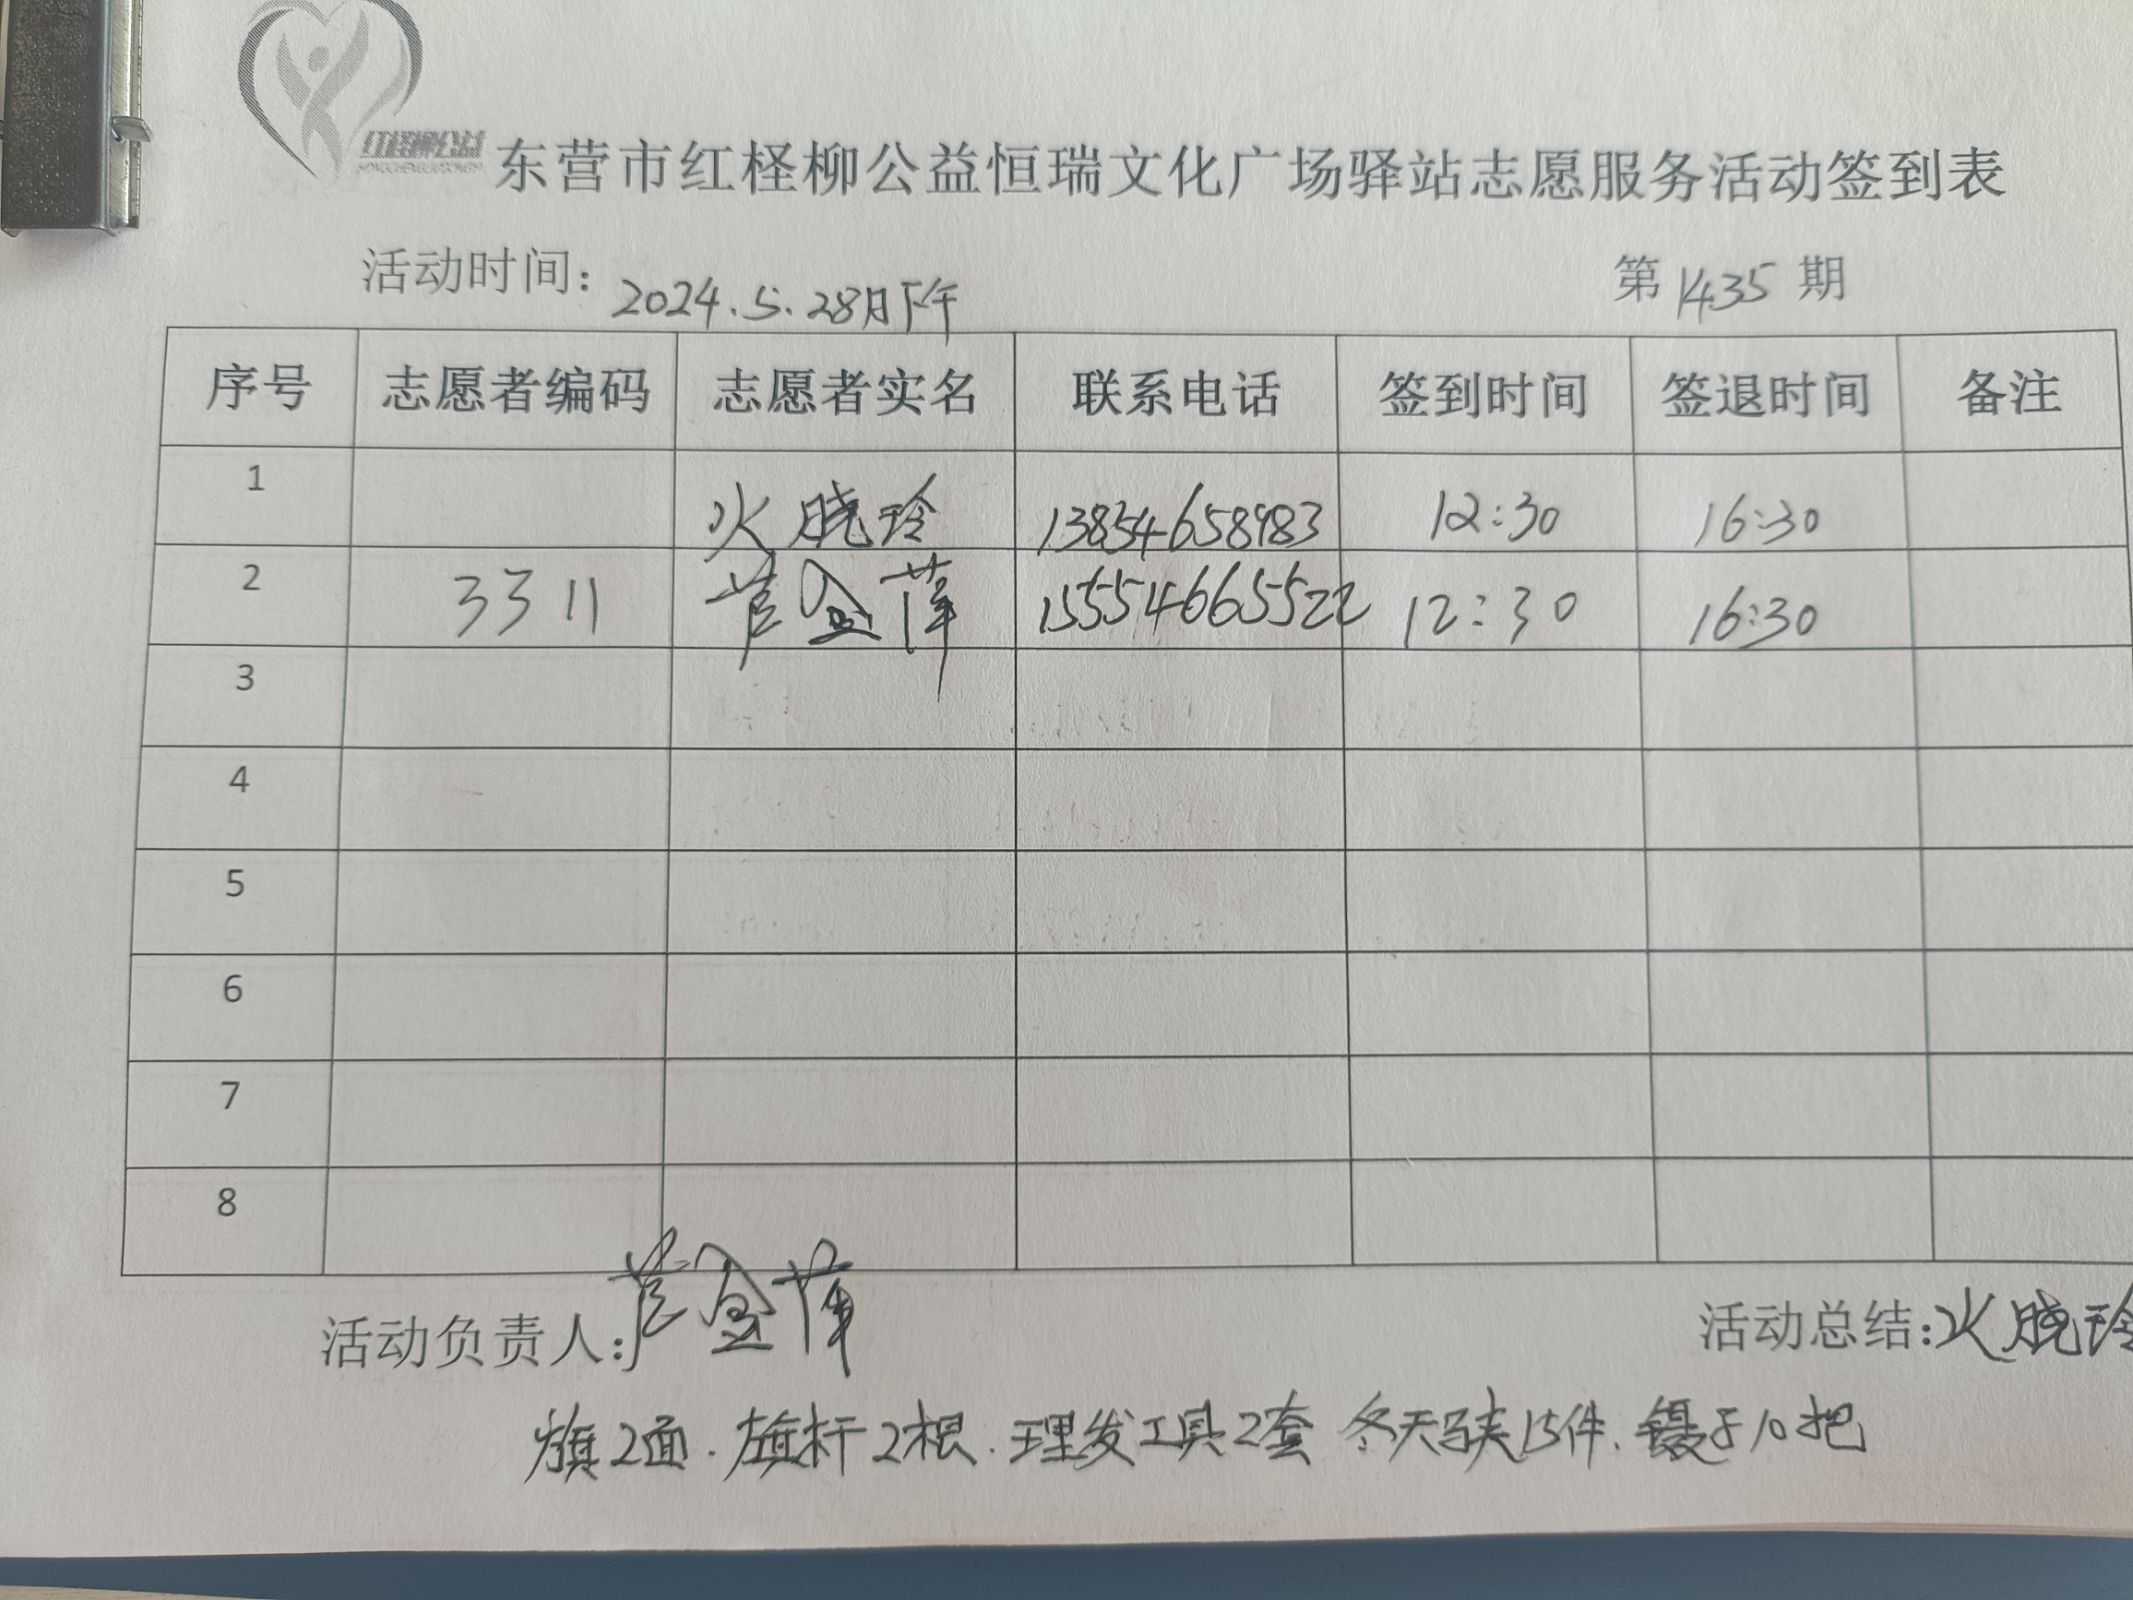 红柽柳公益
东营市红柽柳公益恒瑞文化广场驿站志愿服务活动签到表
活动时间：2024.5.28日下午 第1435期
序号 志愿者编码 志愿者实名 联系电话 签到时间 签退时间 备注
1 火晓玲 13854658983 12:30 16:30
2 3311 苫金萍 15554665522 12:30 16:30
3
4
5
6
7
8
活动负责人: 活动总结:火晓玲
旗2面.旗杆2根.理发工具2套 冬天马夹15件.镊子10把